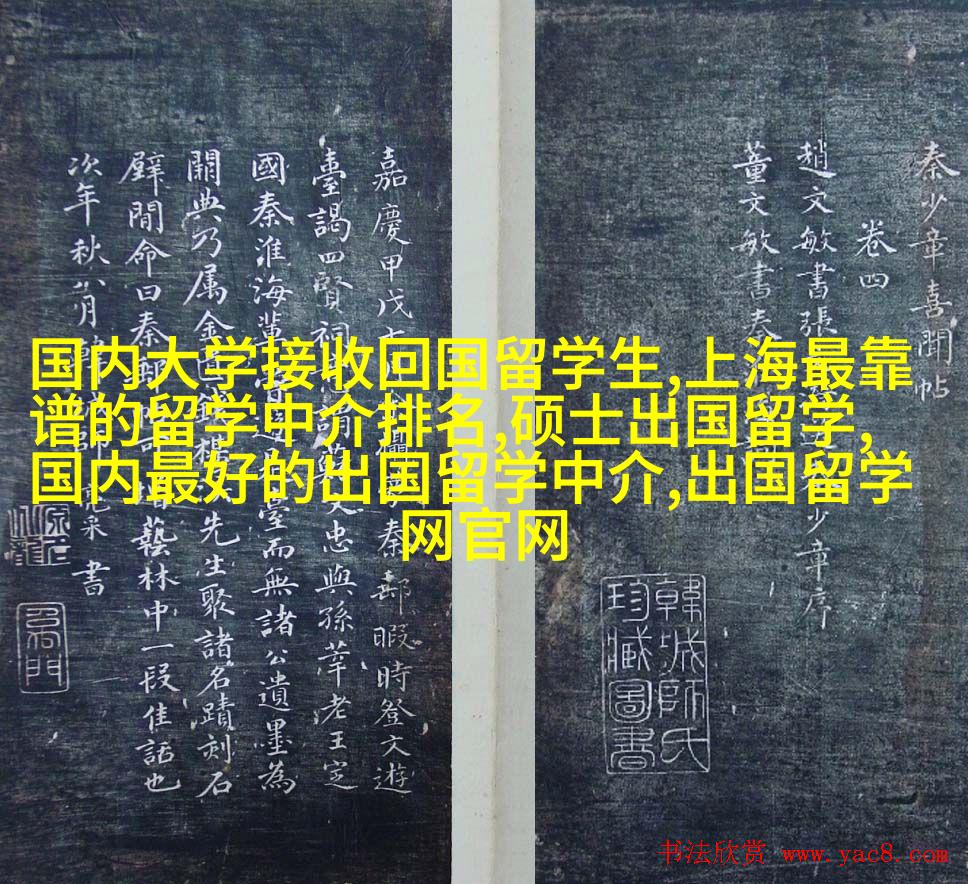 国内大学接收回国留学生,上海最靠
谱的留学中介排名,硕士出国留学,
国内最好的出国留学中介,出国留学
网官网
秦少章喜聞帖
卷四
趙文敏書張 少章序
董文敏書秦
韓城師氏
珍臧圖書
嘉慶甲戌 秦郵暇時登文遊
臺謁四賢祠 謂蘇文忠與孫莘老王定
國秦淮海輩 臺而無諸公遺墨為
闕典乃属金 先生聚諸名蹟刻石
壁間命曰秦郵 藝林中一段佳話也
次年秋八月韓城師亮采書
书法欣赏 www.yac8.com